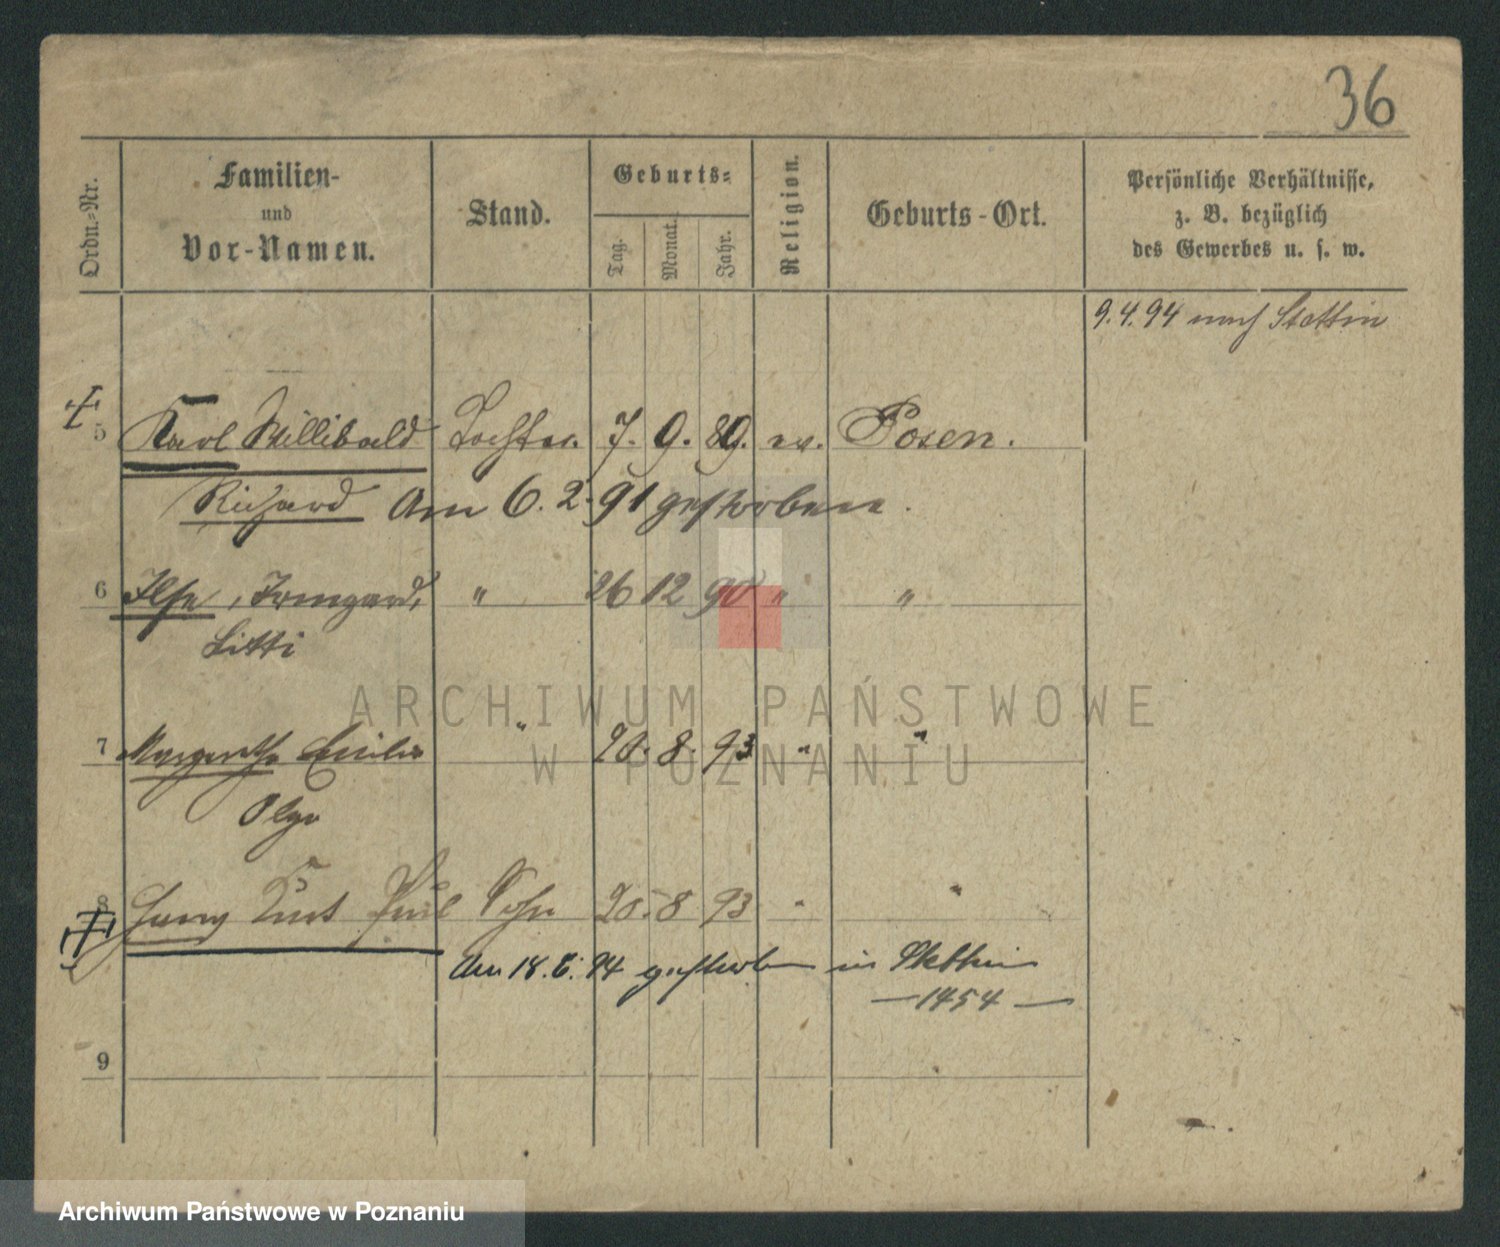 36
Ordn.-Nr.
Familien-
und
Vor-Namen.
Stand.
Geburts-
Tag.
Monat.
Jahr.
Religion.
Geburts-Ort.
Persönliche Verhältnisse,
z. B. bezüglich
des Gewerbes u. s. w.
9.4.94 nach Stettin
5 Karl Willibald Tochter. 7. 9. 89. ev. Posen.
Richard Am 6. 2. 91 gestorben.
6 Ilse, Irmgard, " 26 12 90 " "
Litti
7 Margarethe Emilie " 20. 8. 93 " "
Olga
8 Kurt Paul Sohn 20. 8 93 " "
Am 18. 6. 94 gestorben in Stettin
— 1454 —
9
ARCHIWUM PAŃSTWOWE
W POZNANIU
Archiwum Państwowe w Poznaniu